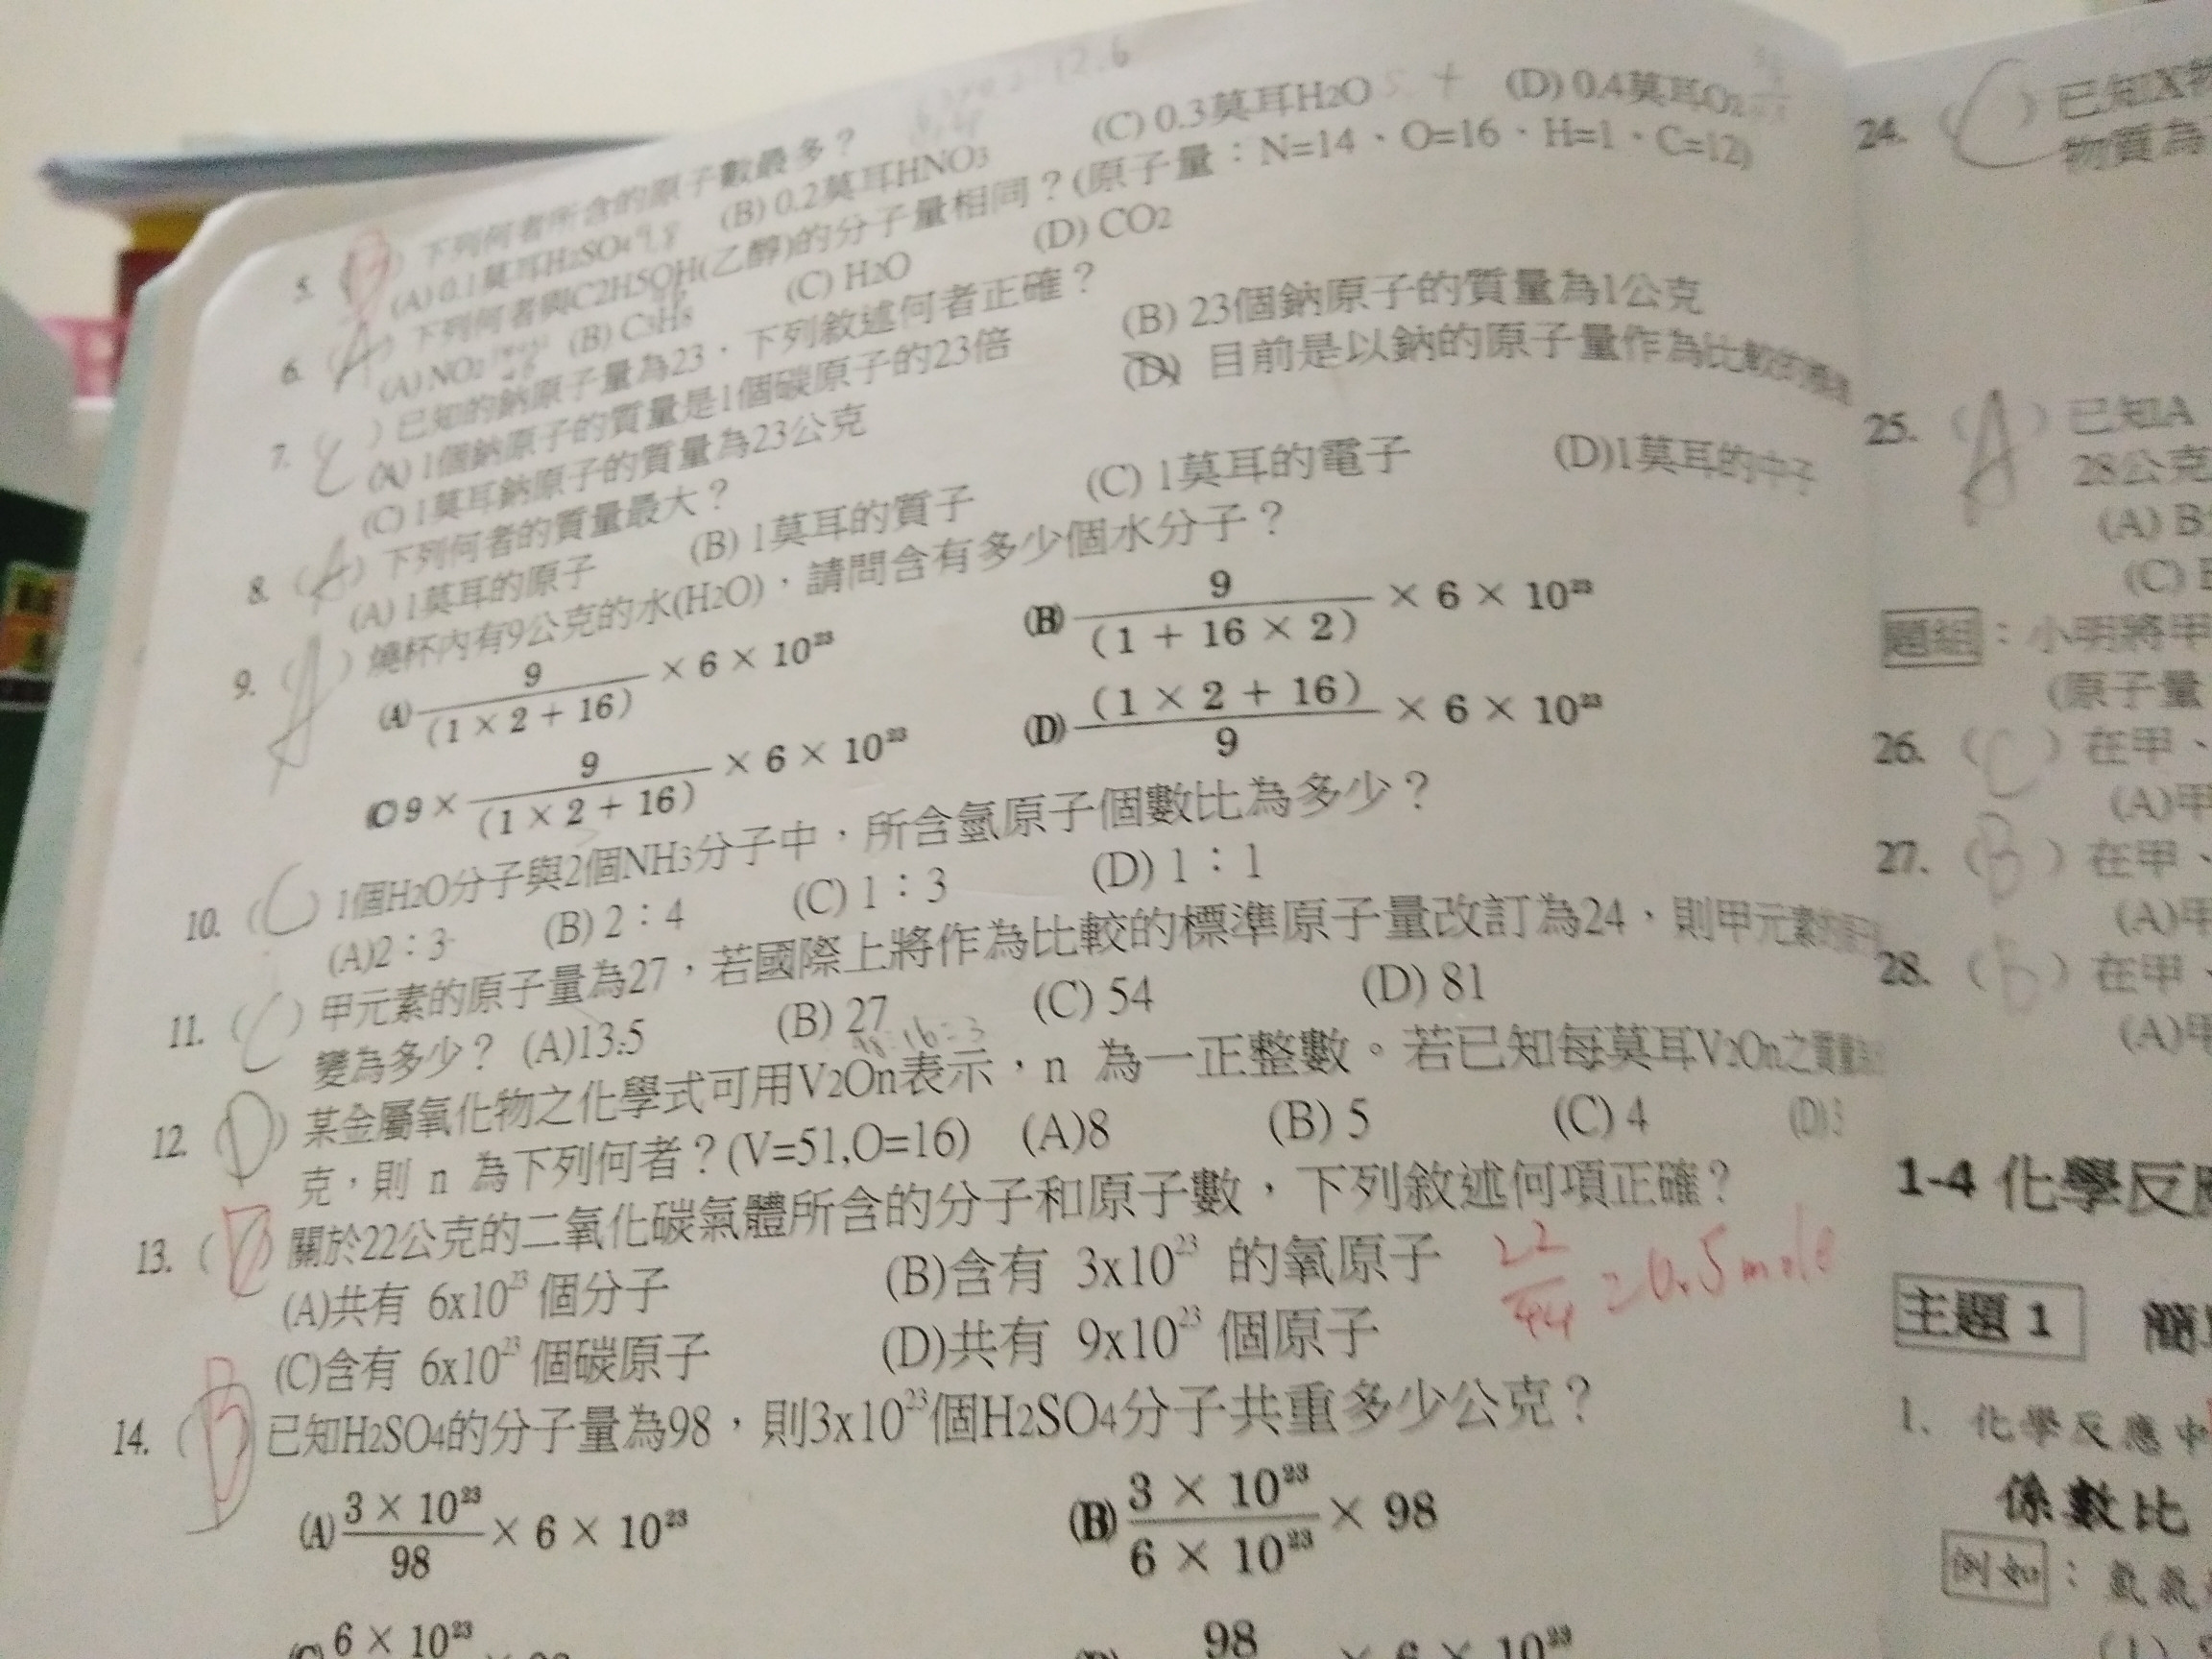 5. (B) 下列何者所含的原子數最多？
(A) 0.1莫耳H2SO4 9.8 (B) 0.2莫耳HNO3 (C) 0.3莫耳H2O (D) 0.4莫耳O2
6. (A) 下列何者與C2H5OH(乙醇)的分子量相同？(原子量：N=14、O=16、H=1、C=12)
(A) NO2 (B) C3H8 (C) H2O (D) CO2
7. (C) 已知的鈉原子量為23，下列敘述何者正確？
(A) 1個鈉原子的質量是1個碳原子的23倍 (B) 23個鈉原子的質量為1公克
(C) 1莫耳鈉原子的質量為23公克 (D) 目前是以鈉的原子量作為比較的標準
8. (A) 下列何者的質量最大？
(A) 1莫耳的原子 (B) 1莫耳的質子 (C) 1莫耳的電子 (D)1莫耳的中子
9. (A) 燒杯內有9公克的水(H2O)，請問含有多少個水分子？
(A) 9/(1 × 2 + 16) × 6 × 10²³ (B) 9/(1 + 16 × 2) × 6 × 10²³
(C) 9 × 9/(1 × 2 + 16) × 6 × 10²³ (D) (1 × 2 + 16)/9 × 6 × 10²³
10. (C) 1個H2O分子與2個NH3分子中，所含氫原子個數比為多少？
(A)2：3 (B) 2：4 (C) 1：3 (D) 1：1
11. (C) 甲元素的原子量為27，若國際上將作為比較的標準原子量改訂為24，則甲元素的原子
變為多少？ (A)13.5 (B) 27 (C) 54 (D) 81
12. (D) 某金屬氧化物之化學式可用V2On表示，n 為一正整數。若已知每莫耳V2On之質量為
克，則 n 為下列何者？(V=51,O=16) (A)8 (B) 5 (C) 4 (D) 3
13. (D) 關於22公克的二氧化碳氣體所含的分子和原子數，下列敘述何項正確？
(A)共有 6x10²³ 個分子 (B)含有 3x10²³ 的氧原子
22/44 = 0.5 mole
(C)含有 6x10²³ 個碳原子 (D)共有 9x10²³ 個原子
14. (B) 已知H2SO4的分子量為98，則3x10²³個H2SO4分子共重多少公克？
(A) 3 × 10²³/98 × 6 × 10²³ (B) 3 × 10²³/6 × 10²³ × 98
(C) 6 × 10²³ (D) 98 × 6 × 10²³
24. (C) 已知X物
物質為
25. (A) 已知A
28公克
(A) B
(C)
題組：小明將甲
(原子量
26. (C) 在甲、
(A)甲
27. (B) 在甲、
(A)甲
28. (B) 在甲、
(A)甲
1-4 化學反應
主題 1
1. 化學反應中
係數比
例如：氫氣
(1)